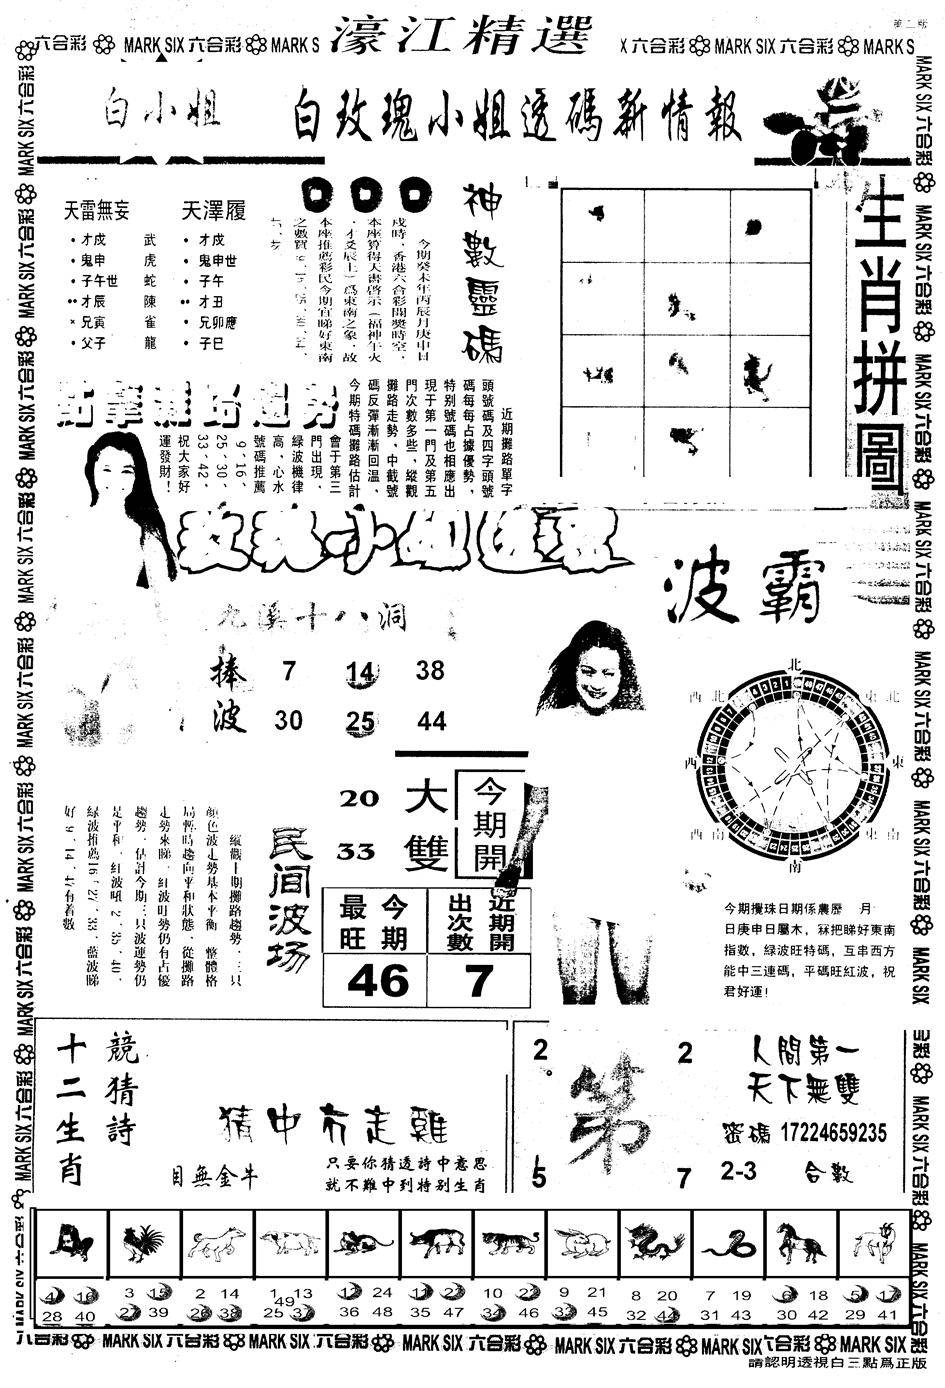 第二版
六合彩 MARK SIX 六合彩 MARK S
濠江精選
X 六合彩 MARK SIX 六合彩 MARK S
白小姐
白玫瑰小姐透碼新情報
天雷無妄
天澤履
才戌 武 才戌
鬼申 虎 鬼申世
子午世 蛇 子午
才辰 陳 才丑
兄寅 雀 兄卯應
父子 龍 子巳
神數靈碼
今期癸未年丙辰月庚申日
戌時，香港六合彩開獎時空，
本座算得天書啓示（福神午火
，才爻辰土）爲東南之象，故
本座推薦彩民今期宜睇好東南
生肖拼圖
點擊攤路趨勢
近期攤路單字
頭號碼及四字頭號
碼每每占據優勢，
特别號碼也相應出
現于第一門及第五
門次數多些，縱觀
攤路走勢，中截號
碼反彈漸漸回溫，
今期特碼攤路估計
會于第三
門出現，
綠波機律
高，心水
號碼推薦
9、16、
25、30、
33、42，
祝大家好
運發財！
玫瑰小姐
波霸
九溪十八洞
捧波
7 14 38
30 25 44
北
東北
東
東南
南
西南
西
西北
20
33
大雙
今期開
最旺今期
近期開出次數
46
7
民间波场
縱觀十期攤路趨勢，三只
顔色波走勢基本平衡，整體格
局暫時趨向平和狀態，從攤路
走勢來睇，紅波旺勢仍有占優
趨勢，估計今期三只波運勢仍
是平和，紅波吼2、35、40，
綠波推薦16、27、33，藍波睇
好9、14、47有着數
今期攪珠日期係農歷 月
日庚申日屬木，冧把睇好東南
指數，綠波旺特碼，互串西方
能中三連碼，平碼旺紅波，祝
君好運！
十二生肖
競猜詩
猜中冇走雞
目無金牛
只要你猜透詩中意思
就不難中到特别生肖
2
2
5
7
第
人間第一
天下無雙
密碼 17224659235
2-3 合數
4 16 28 40
3 15 27 39
2 14 26 38
1 13 25 37 49
12 24 36 48
11 23 35 47
10 22 34 46
9 21 33 45
8 20 32 44
7 19 31 43
6 18 30 42
5 17 29 41
六合彩 MARK SIX 六合彩 MARK SIX 六合彩 MARK SIX 六合彩 MARK SIX 六合彩 MARK SIX 六合彩 MARK SIX 六合彩
請認明透視白三點爲正版